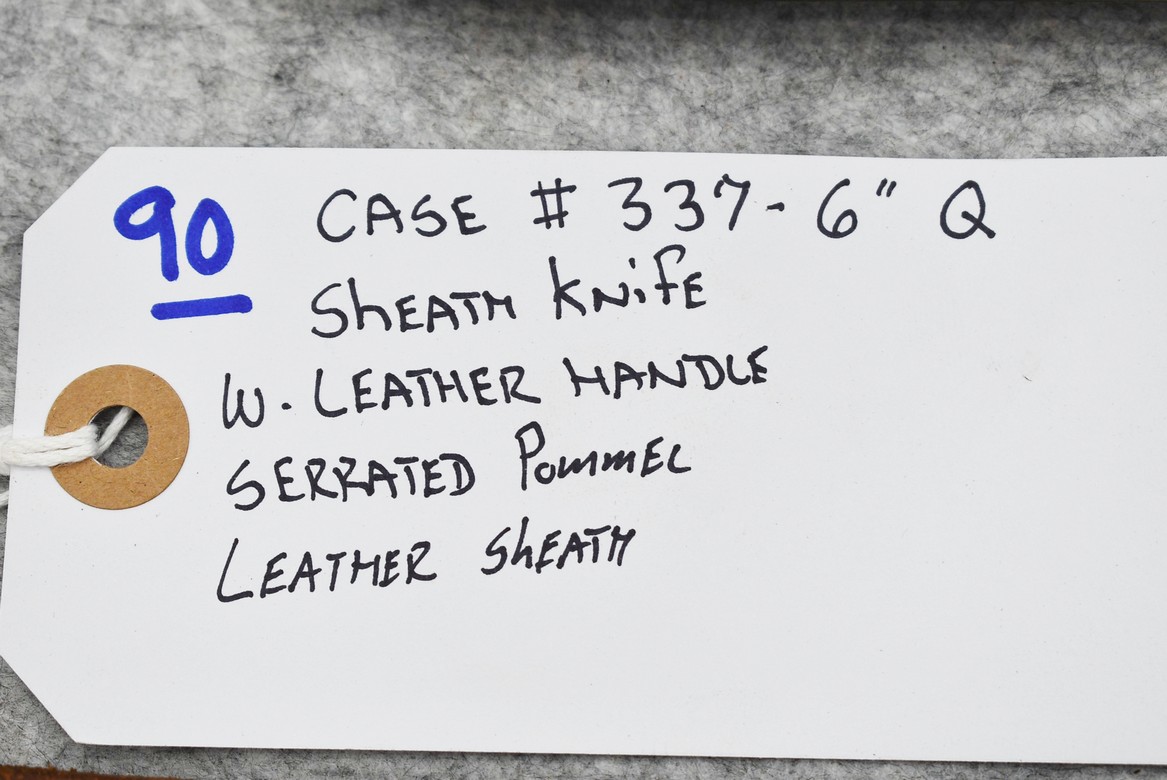 90
CASE # 337-6" Q
SHEATH KNIFE
W. LEATHER HANDLE
SERRATED POMMEL
LEATHER SHEATH